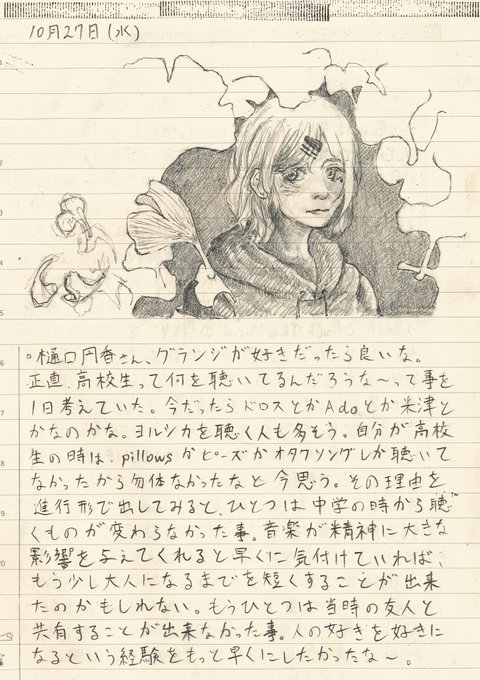 10月27日(水)
。樋口円香さん、グランジが好きだったら良いな。
正直、高校生って何を聴いてるんだろうな〜って事を
1日考えていた。今だったらドロスとかAdoとか米津と
かなのかな。ヨルシカを聴く人も多そう。自分が高校
生の時は、pillowsかピーズかオタクソングしか聴いて
なかったから勿体なかったなと今思う。その理由を
進行形で出してみると、ひとつは中学の時から聴
くものが変わらなかった事。音楽が精神に大きな
影響を与えてくれると早くに気付けていれば、
もう少し大人になるまでを短くすることが出来
たのかもしれない。もうひとつは当時の友人と
共有することが出来なかった事。人の好きを好きに
なるという経験をもっと早くにしたかったな〜。